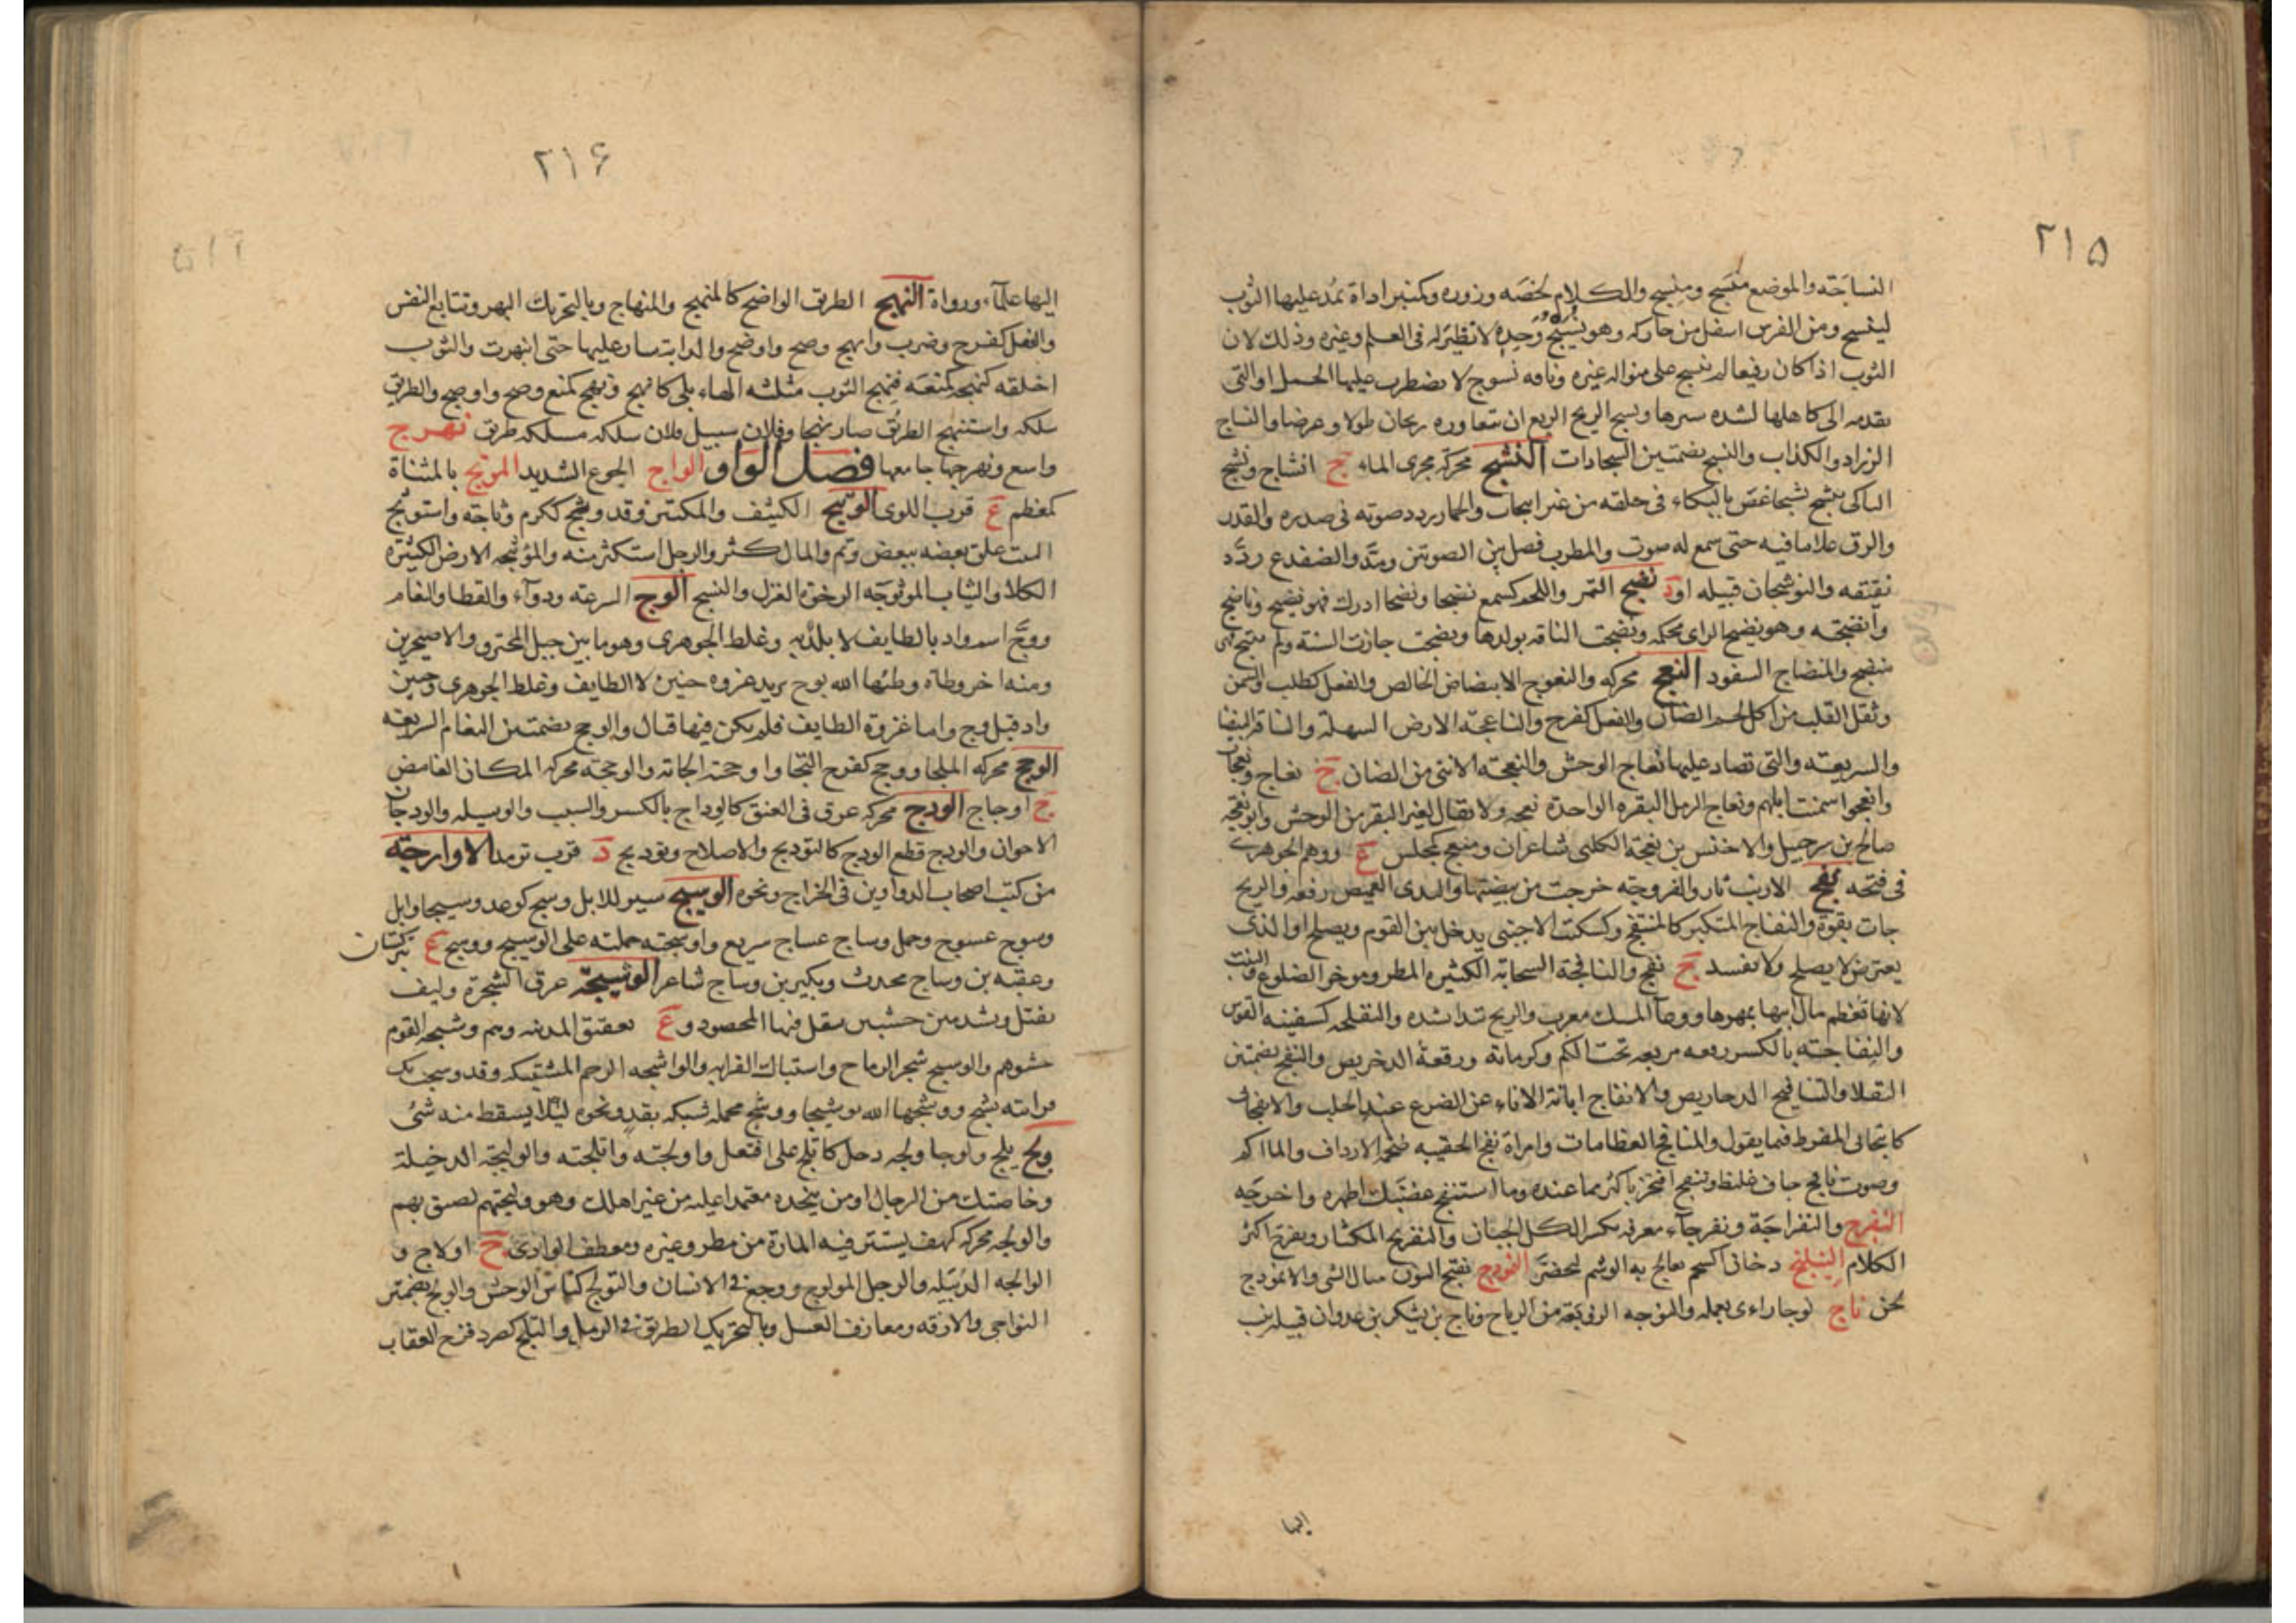 ۲۱۵
النساجة والموضع منسج ومنسج والكلام لخصه وزوره وكمنبر اداة يمد عليها الثوب
لينسج ومن الفرس اسفل من حاركه وهو نسيج وحده لا نظير له فى العلم وغيره وذلك لان
الثوب اذا كان رفيعا لم ينسج على منواله غيره وناقه نسوج لا يضطرب عليها الحمل او التى
تقدمه الى كاهلها لشده سيرها ونسج الريح الربع ان يتعاوره ريحان طولا وعرضا والنساج
الزراد والكذاب والنسج بضمتين السجادات النشج محركة مجرى الماء ج انشاج ونشج
الباكى ينشج نشيجا غص بالبكاء فى حلقه من غير انتحاب والحمار ردد صوته فى صدره والقدر
والزق غلا ما فيه حتى سمع له صوت والمطرب فصل بين الصوتين ومد والضفدع ردد
نقنقه والنوشجان قبيله او د نضج التمر واللحم كسمع نضجا ونضجا ادرك فهو نضيج وناضج
وانضجته وهو نضيج الراى محكمه ونضجت الناقه بولدها ونضجت جازت السنة ولم تنتج فهى
منضج والمنضاج السفود النعج محركه والنعوج الابيضاض الخالص والفعل كطلب والسمن
وثقل القلب من اكل لحم الضان والفعل كفرح والناعجة الارض السهلة والناقة البيضا
والسريعة والتى تصاد عليها نعاج الوحش والنعجة الانثى من الضان ج نعاج ونعجات
وانعجوا سمنت ابلهم ونعاج الرمل البقره الواحدة نعجه ولا يقال لغير البقر من الوحش وابو نعجه
صالح بن شرحبيل والاخنس بن نعجة الكلبى شاعران ومنعج كمجلس ع ووهم الجوهرى
فى فتحه نفج الارنب ثار والفروجة خرجت من بيضتها والثدى القميص رفعه والريح
جات بقوة والنفاج المتكبر كالمنتفج وكسكت الاجنبى يدخل بين القوم ويصلح او الذى
يعترض لا يصلح ولا يفسد ج نفج والنافجة السحابة الكثيره المطر ومؤخر الضلوع والبنت
لانها تعظم مال ابيها بمهرها ووعآ المسك معرب والريح تبدا بشده والنفيجه كسفينه القوس
والنفاجة بالكسر رقعه مربعه تحت الكم وكرمانة ورقعة الدخريص والنفج بضمتين
الثقلا والتنافيج الدخاريص والانفاج ابانة الاناء عن الضرع عند الحلب والانفجانى
كانبجانى المفرط فيما يقول والمنافج العظامات وامراة نفج الحقيبه ضخمه الارداف والماكم
وصوت نافج جاف غليظ وتنفج افتخر باكثر مما عنده وما استنفج غضبك اظهره واخرجه
النفرج والنفراجة ونفرجاء معرفه بكسر الكل الجبان والنفريج المكثار ونفرج اكثر
الكلام النيلنج دخان الشحم يعالج به الوشم ليخضر النموذج بفتح النون مثال الشى والانموذج
لحن ناج نوجا راءى بعمله والنوجه الزوبعة من الرياح وناج بن يشكر بن عدوان قبيلة ينسب
اليها
۲۱۶
اليها علمآء ورواة النهج الطريق الواضح كالمنهج والمنهاج وبالتحريك البهر وتتابع النفس
والفعل كفرح وضرب وانهج وضح واوضح والدابة سار عليها حتى انبهرت والثوب
اخلقه كنهجه كمنعه فنهج الثوب مثلثه الهاء بلى كانهج ونهج كمنع وضح واوضح والطريق
سلكه واستنهج الطريق صار نهجا وفلان سبيل فلان سلكه مسلكه طريق نهرج
واسع ونهرجها جامعها فصل الواو الواج الجوع الشديد الموتج بالمثناة
كمعظم ع قرب اللوى الوثيج الكثيف والمكتنز وقد وثج ككرم وثاجة واستوثج
النبت علق بعضه ببعض وتم والمال كثر والرجل استكثر منه والمؤثجه الارض الكثيرة
الكلا والثياب الموثوجه الرخوة الغزل والنسج الوج السرعة ودوآء والقطا والنعام
ووج اسم واد بالطايف لا بلد به وغلط الجوهرى وهو ما بين جبل المحترق والاحيحرين
ومنه اخر وطاة وطئها الله بوج يريد غزوه حنين لا الطايف وغلط الجوهرى وحنين
واد قبل وج واما غزوة الطايف فلم يكن فيها قتال والوجج بضمتين النعام السريعه
الوحج محركه الملجا ووحج كفرح التجا واوحجته الجاته والوحجة محركه المكان الغامض
ج اوحاج الودج محركه عرق فى العنق كالوداج بالكسر والسبب والوسيله والودجان
الاخوان والودج قطع الودج كالتوديج والاصلاح وتوديج د قرب ترمد الاوارجة
من كتب اصحاب الدواوين فى الخراج ونحوه الوسيج سير للابل وسج كوعد وسيجا وابل
وسوج عسوج وجمل وساج عساج سريع واوسجته حملته على الوسيج ووسج ع بتركستان
وعقبه بن وساج محدث وبكير بن وساج شاعر الوشيجة عرق الشجرة وليف
يفتل ويشد بين خشبتين ينقل فيها المحصود وع بعقيق المدينه وهم وشيجه القوم
حشوهم والوشيج شجر الرماح واشتباك القرابه والواشجه الرحم المشتبكه وقد وشجت بك
قرابته تشج ووشجها الله توشيجا ووشج محمله شبكه بقد ونحوه ليلا يسقط منه شئ
ولج يلج ولوجا ولجه دخل كاتلج على افتعل واولجته واتلجته والوليجة الدخيلة
وخاصتك من الرجال او من تتخذه معتمدا عليه من غير اهلك وهو وليجتهم لصيق بهم
والولجه محركه كهف يستتر فيه المارة من مطر وغيره ومعطف الوادى ج اولاج و
الوالجه الدبيله والرجل المولوج ووجع فى الانسان والتولج كناس الوحش والولج بضمتين
النواحى والازقه ومعارف العسل وبالتحريك الطريق فى الرمل والتلج كصرد فرخ العقاب